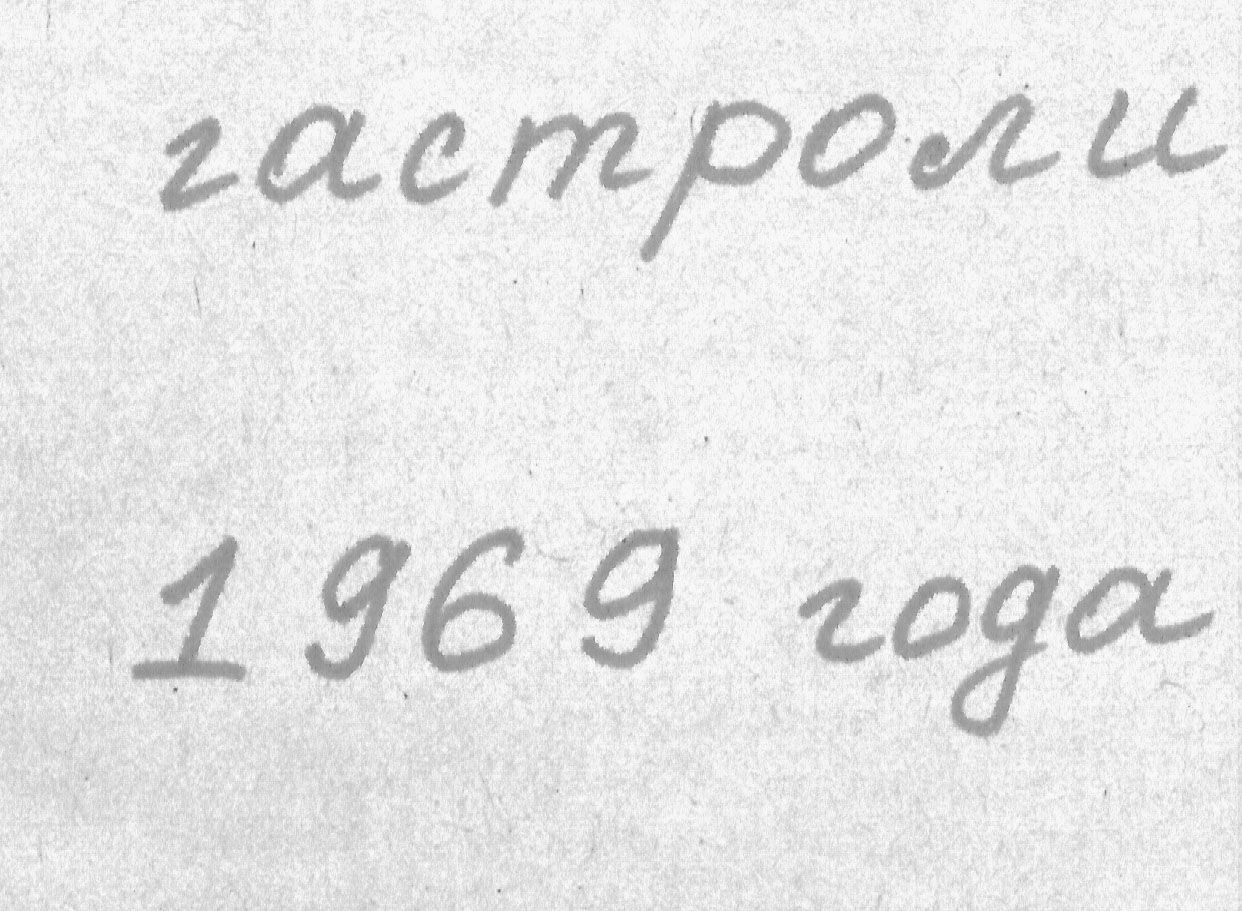 гастроли
1969 года